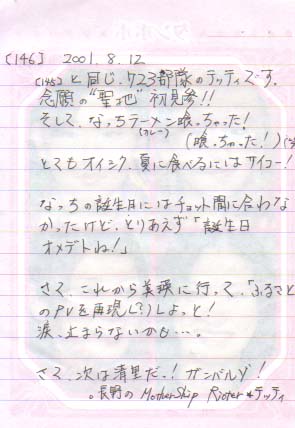 [146] 2001.8.12
[145]と同じ、723部隊のテッティズです。
念願の"聖地"初見参!!
そして、なっちラーメン喰っちゃった!
(カレー)(喰っちゃった!)
とてもオイシク、夏に食べるにはサイコー!
なっちの誕生日にはチョット間に合わな
かったけど、とりあえず「誕生日
オメデトね!」
さて、これから美瑛に行って、「ふるさと
のPVを再現(?)しよっと!
涙、止まらないかも…。
さて、次は清里だっ!ガンバルゾ!
。長野の MotherShip Rioter*テッティ